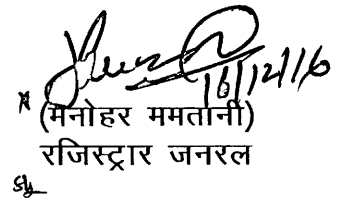 16/12/16
(मनोहर ममतानी)
रजिस्ट्रार जनरल